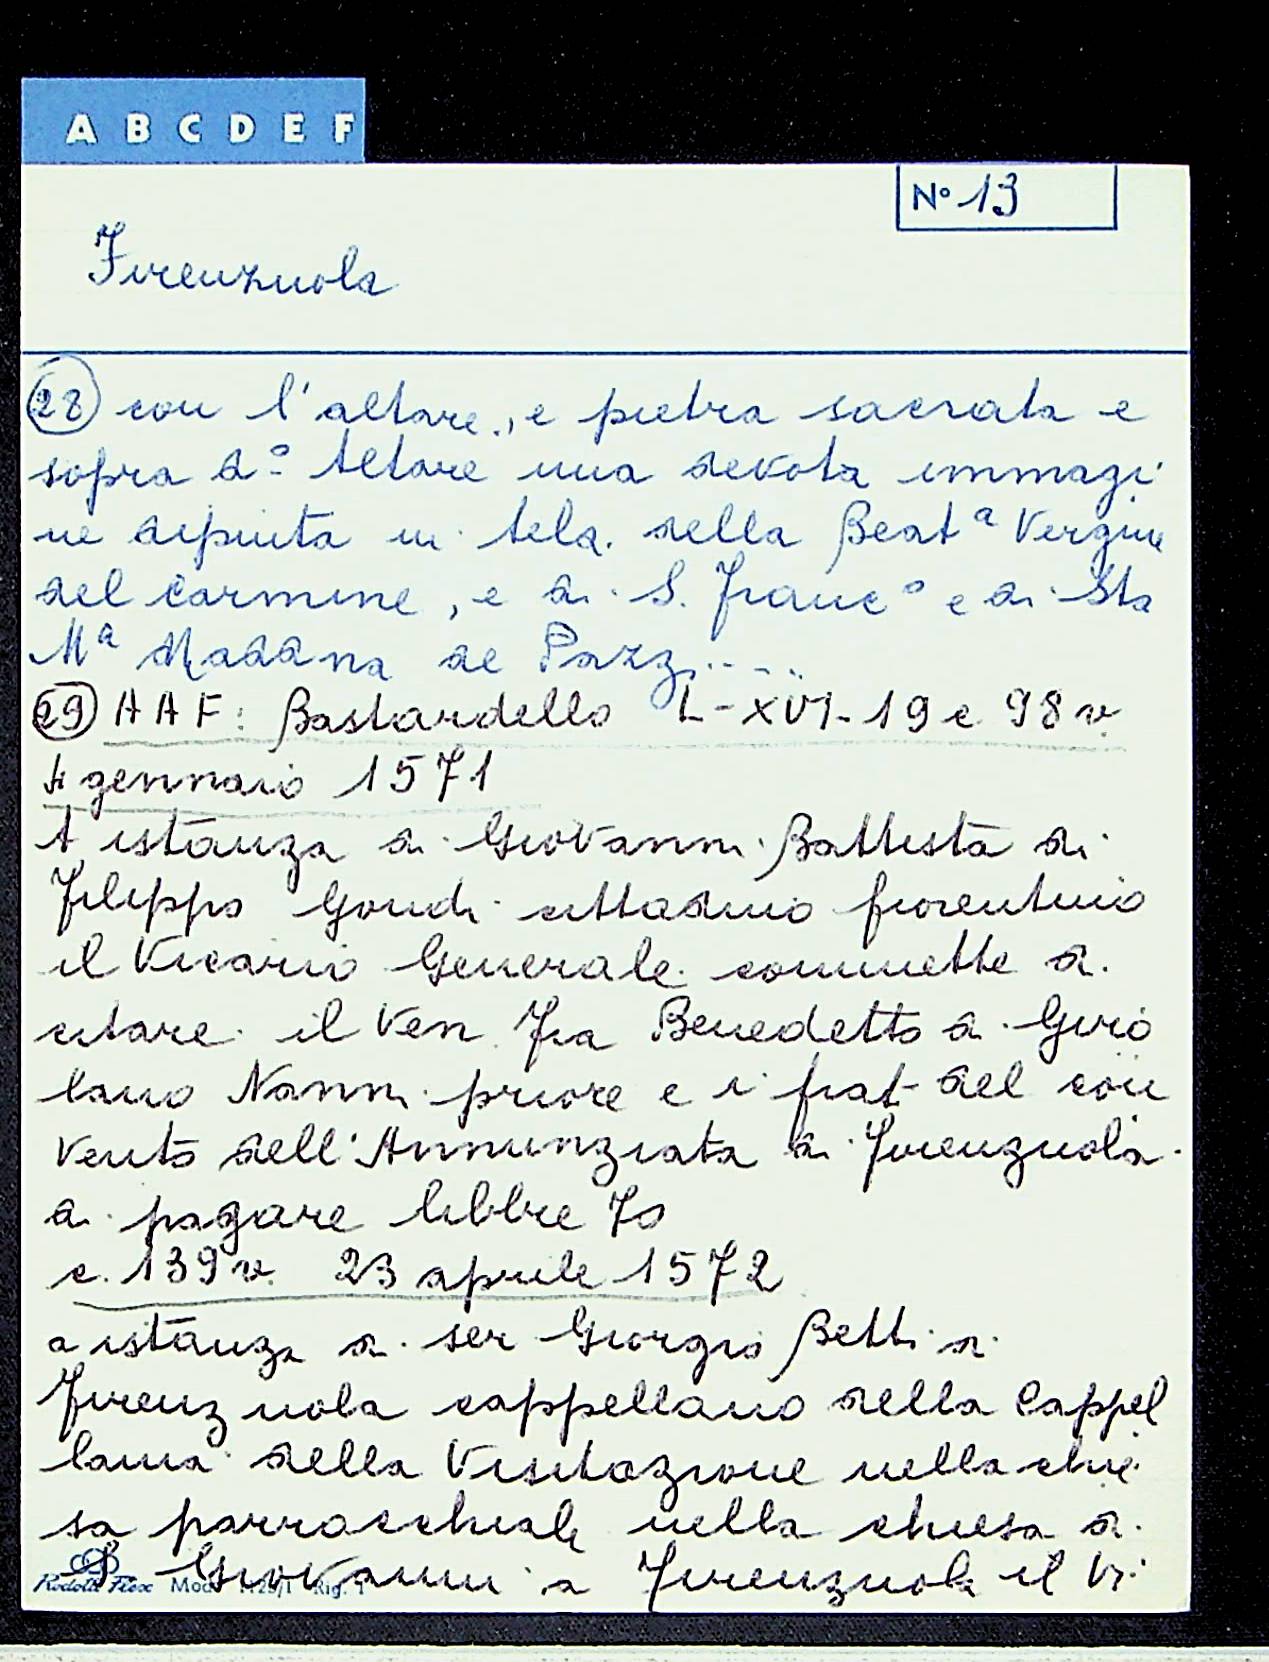 A B C D E F
Nº 13
Firenzuola
28 con l'altare, e pietra sacrata e
sopra dº Altare una devota immagi
ne dipinta in tela della Beatª Vergine
del Carmine, e di S. Francº e di Sta
Mª Maddna de Pazzi....
29 AAF: Bastardello L-XVI-19 c 98v
4 gennaio 1571
A istanza di Giovanni Battista di
Filippo Gondi cittadino fiorentino
il Vicario Generale commette di
citare il Ven Fra Benedetto di Giro
lamo Nanni priore e i frat del con
vento dell'Annunziata di Firenzuola
di pagare libbre 70
c. 139v. 23 aprile 1572
a istanza di ser Giorgio Betti di
Firenzuola cappellano della Cappel
lania della Visitazione nella chie
sa parrocchiale nella chiesa di
S. Giovanni a Firenzuola il Vi